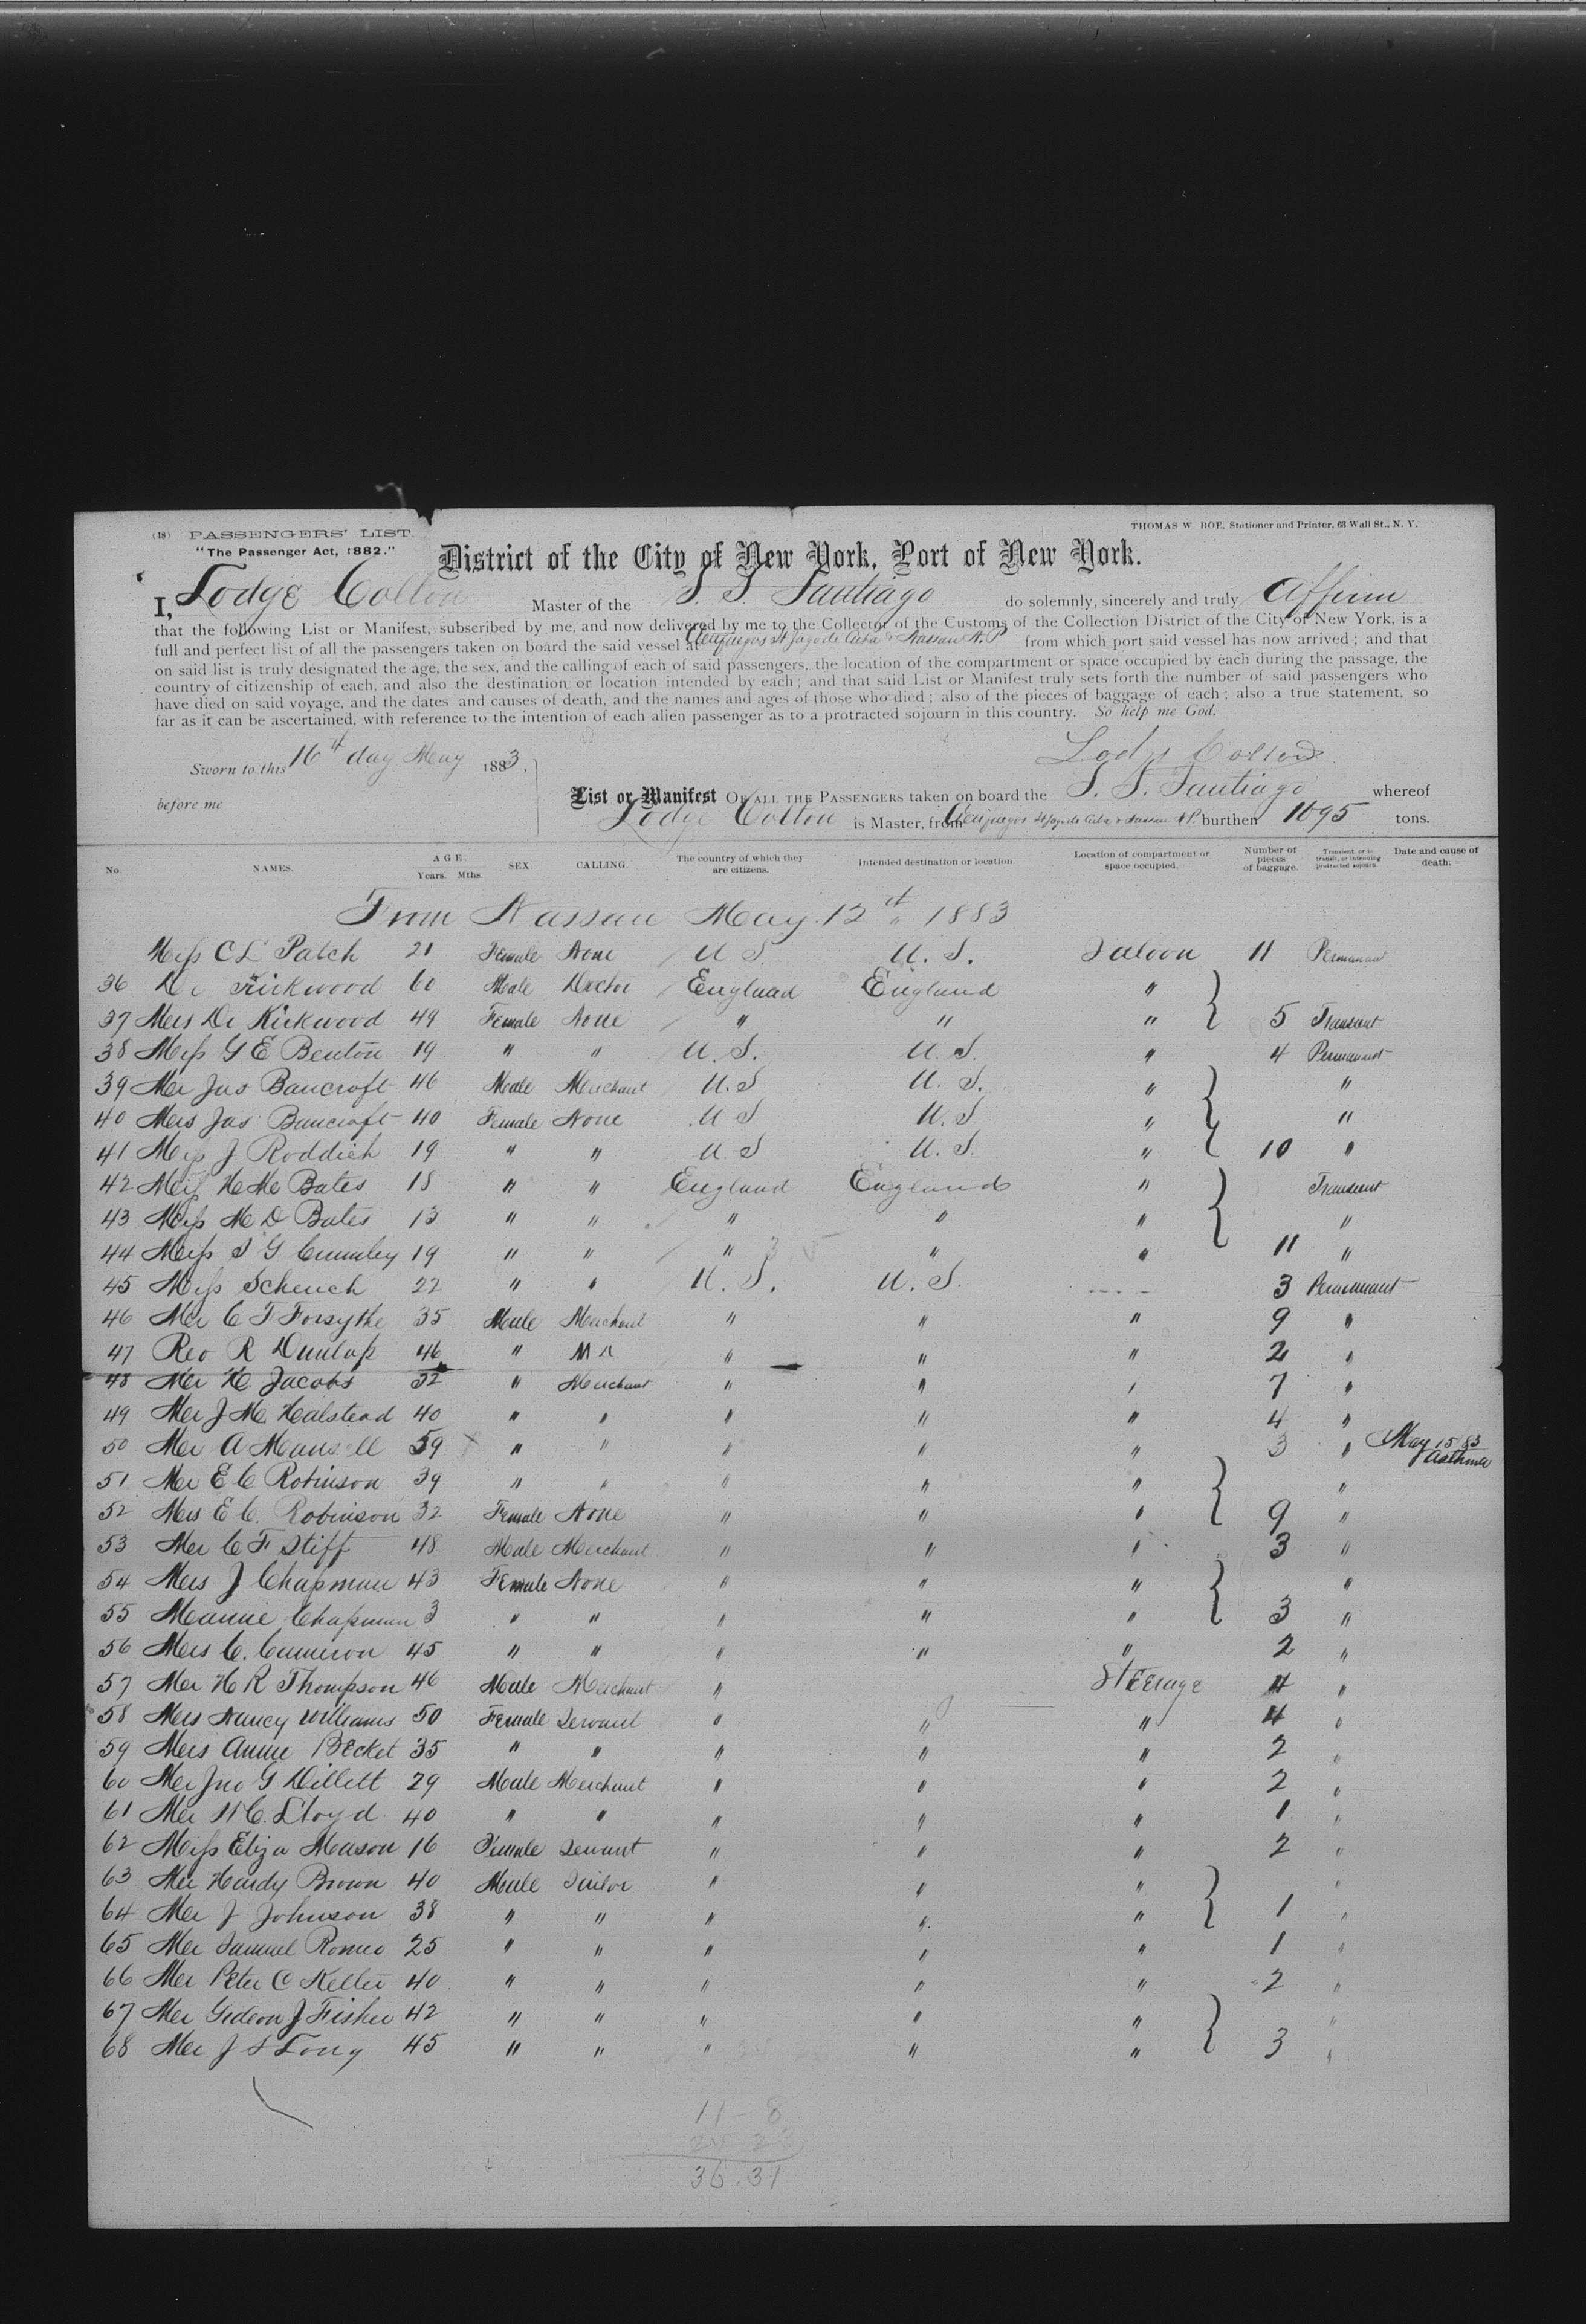 (18) PASSENGERS' LIST.
THOMAS W. ROE, Stationer and Printer, 63 Wall St., N. Y.
"The Passenger Act, 1882."
District of the City of New York, Port of New York.
I, Lodge Colton Master of the S. S. Santiago do solemnly, sincerely and truly Affirm
that the following List or Manifest, subscribed by me, and now delivered by me to the Collector of the Customs of the Collection District of the City of New York, is a
full and perfect list of all the passengers taken on board the said vessel at Cienfuegos St Jago de Cuba & Nassau N. P from which port said vessel has now arrived; and that
on said list is truly designated the age, the sex, and the calling of each of said passengers, the location of the compartment or space occupied by each during the passage, the
country of citizenship of each, and also the destination or location intended by each; and that said List or Manifest truly sets forth the number of said passengers who
have died on said voyage, and the dates and causes of death, and the names and ages of those who died; also of the pieces of baggage of each; also a true statement, so
far as it can be ascertained, with reference to the intention of each alien passenger as to a protracted sojourn in this country. So help me God.
Sworn to this 16th day May 1883.
Lodge Colton
before me
List or Manifest OF ALL THE PASSENGERS taken on board the S. S. Santiago whereof
Lodge Colton is Master, from Cienfuegos St Jago de Cuba & Nassau N P. burthen 1695 tons.
No. NAMES. AGE. Years. Mths. SEX. CALLING. The country of which they are citizens. Intended destination or location. Location of compartment or space occupied. Number of pieces of baggage. Transient, or in transit, or intending protracted sojourn. Date and cause of death.
From Nassau May 12th 1883
Miss C L Patch 21 Female None U S. U. S. Saloon 11 Permanant
36 Dr Kirkwood 60 Male Doctor England England "
37 Mrs Dr Kirkwood 49 Female None " " " 5 Transant
38 Miss G E Benton 19 " " U. S. U. S. " 4 Permanant
39 Mr Jas Bancroft 46 Male Merchant U. S U. S. " "
40 Mrs Jas Bancroft 40 Female None U S U. S " "
41 Miss J Roddich 19 " " U S U. S. " 10 "
42 Miss H Mc Bates 18 " " England England " Transeant
43 Miss M D Bates 13 " " " " " "
44 Miss S G Crumley 19 " " " " " 11 "
45 Miss Schench 22 " " U. S. U. S. 3 Permanant
46 Mr C T Forsythe 35 Male Merchant " " " 9 "
47 Rev R Dunlap 46 " " " " 2 "
48 Mr H Jacobs 32 " Merchant " " " 7 "
49 Mr J M. Halstead 40 " " " " " 4 "
50 Mr A Mansell 59 " " " " " 3 " May 15 83 Asthma
51 Mr E C Robinson 39 " " " " " "
52 Mrs E C. Robinson 32 Female None " " " 9 "
53 Mr C F Stiff 48 Male Merchant " " " 3 "
54 Mrs J Chapman 43 Female None " " " "
55 Mannie Chapman 3 " " " " " 3 "
56 Mrs C. Cameron 45 " " " " " 2 "
57 Mr H R Thompson 46 Male Merchant " Steerage 4 "
58 Mrs Nancy Williams 50 Female Servant " " " 4 "
59 Mrs Annie Becket 35 " " " " " 2 "
60 Mr Jno G Dillett 29 Male Merchant " " " 2 "
61 Mr C. Lloyd 40 " " " " " 1 "
62 Miss Eliza Mason 16 Female Servant " " " 2 "
63 Mr Hardy Brown 40 Male Sailor " " " "
64 Mr J Johnson 38 " " " " " 1 "
65 Mr Samuel Romeo 25 " " " " " 1 "
66 Mr Peter C Keller 40 " " " " " 2 "
67 Mr Gedeon J Fisher 42 " " " " " "
68 Mr J S Long 45 " " " " " 3 "
11 - 8
36.31